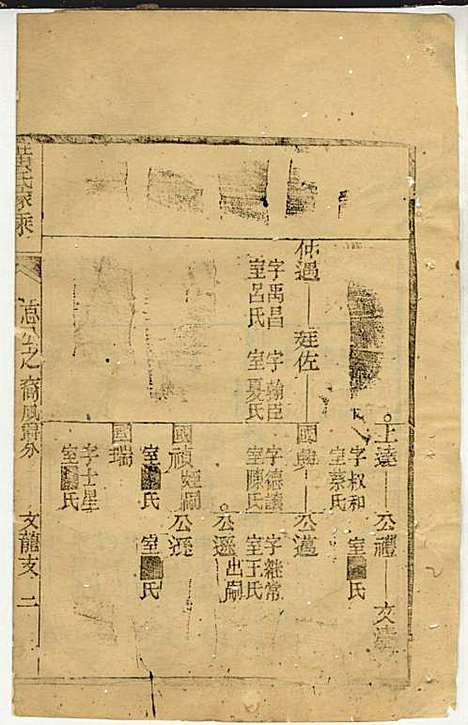 士達 公禮 文
字叔和 室蔡氏
室 氏
仲遇 廷佐 國興 公邁
字禹昌 室呂氏
字翰臣 室夏氏
字德讓 室陳氏
字繼常 室王氏
公遜 出嗣
國禎 姪嗣 公遜
室 氏
室 氏
國瑞
字士星
室 氏
黃氏家乘
之裔鳳 分
文龍支 二